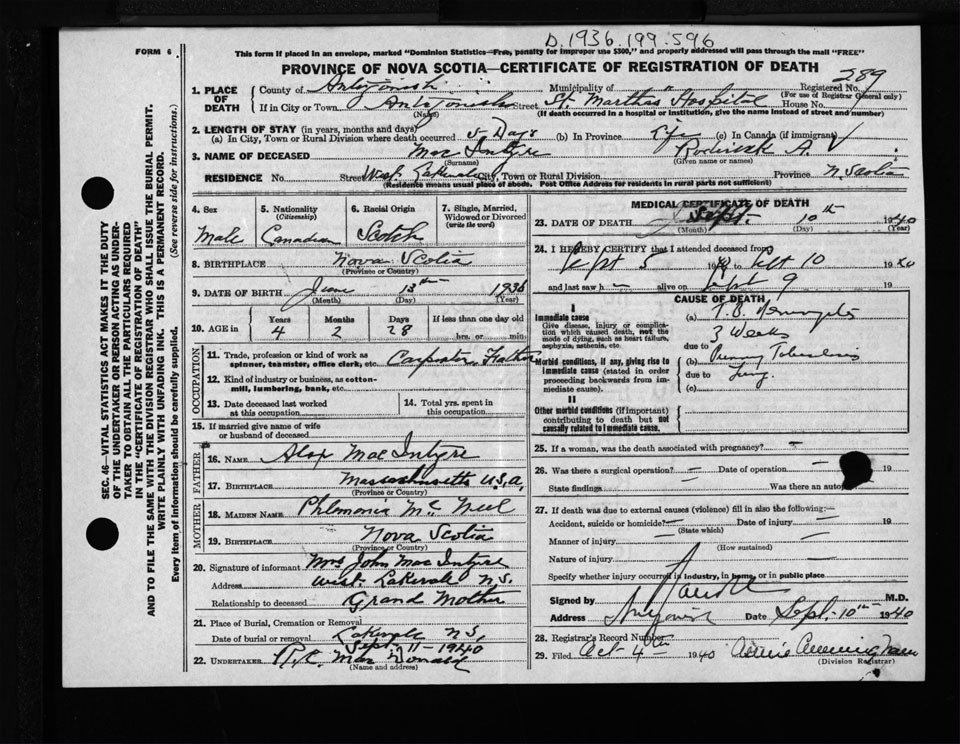 D.1936.199.596
FORM 6
This form if placed in an envelope, marked "Dominion Statistics—Free, penalty for improper use $300," and properly addressed will pass through the mail "FREE"
PROVINCE OF NOVA SCOTIA—CERTIFICATE OF REGISTRATION OF DEATH
289
1. PLACE OF DEATH
County of Antigonish Municipality of Registered No.
(For use of Registrar General only)
If in City or Town Antigonish Street St. Marthas Hospital House No.
(Name) (If death occurred in a hospital or institution, give the name instead of street and number)
2. LENGTH OF STAY (in years, months and days)
(a) In City, Town or Rural Division where death occurred 5 Days (b) In Province Life (c) In Canada (if immigrant)
3. NAME OF DECEASED Mac Intyre Roderick A.
(Surname) (Given name or names)
RESIDENCE No. Street West Lakevale City, Town or Rural Division Province N. Scotia
(Residence means usual place of abode. Post Office Address for residents in rural parts not sufficient)
4. Sex
Male
5. Nationality
(Citizenship)
Canadian
6. Racial Origin
Scotch
7. Single, Married, Widowed or Divorced
(write the word)
8. BIRTHPLACE Nova Scotia
(Province or Country)
9. DATE OF BIRTH June 13th 1936
(Month) (Day) (Year)
10. AGE in
Years Months Days If less than one day old
4 2 28 hrs. or min.
OCCUPATION
11. Trade, profession or kind of work as spinner, teamster, office clerk, etc. Carpenter Father
12. Kind of industry or business, as cotton-mill, lumbering, bank, etc.
13. Date deceased last worked at this occupation
14. Total yrs. spent in this occupation
15. If married give name of wife or husband of deceased
FATHER
16. NAME Alex Mac Intyre
17. BIRTHPLACE Massachusetts U.S.A.
(Province or Country)
MOTHER
18. MAIDEN NAME Philmonia Mc Neil
19. BIRTHPLACE Nova Scotia
(Province or Country)
20. Signature of informant Mrs John Mac Intyre
Address West Lakevale N.S.
Relationship to deceased Grand Mother
21. Place of Burial, Cremation or Removal Lakevale N.S.
Date of burial or removal Sept. 11-1940
22. UNDERTAKER Mac Donald
(Name and address)
MEDICAL CERTIFICATE OF DEATH
23. DATE OF DEATH Sept. 10th 1940
(Month) (Day) (Year)
24. I HEREBY CERTIFY that I attended deceased from
Sept 5 1940 to Sept 10 1940
and last saw h alive on Sept 9 19
CAUSE OF DEATH
I
Immediate cause
Give disease, injury or complication which caused death, not the mode of dying, such as heart failure, asphyxia, asthenia, etc.
(a) T.B. Meningitis
3 Weeks
due to
Morbid conditions, if any, giving rise to immediate cause (stated in order proceeding backwards from immediate cause).
(b) Primary Tuberculosis
due to Lung
(c)
II
Other morbid conditions (if important) contributing to death but not causally related to immediate cause.
25. If a woman, was the death associated with pregnancy? —
26. Was there a surgical operation? — Date of operation — 19
State findings Was there an autopsy
27. If death was due to external causes (violence) fill in also the following:—
Accident, suicide or homicide? — Date of injury — 19
(State which)
Manner of injury —
(How sustained)
Nature of injury —
Specify whether injury occurred in industry, in home, or in public place
Signed by M.D.
Address Antigonish Date Sept. 10th 1940
28. Registrar's Record Number
29. Filed Oct 4th 1940 Cunningham
(Division Registrar)
SEC. 46—VITAL STATISTICS ACT MAKES IT THE DUTY
OF THE UNDERTAKER OR PERSON ACTING AS UNDER-
TAKER TO OBTAIN ALL THE PARTICULARS REQUIRED
IN THE "CERTIFICATE OF REGISTRATION OF DEATH"
AND TO FILE THE SAME WITH THE DIVISION REGISTRAR WHO SHALL ISSUE THE BURIAL PERMIT.
WRITE PLAINLY WITH UNFADING INK. THIS IS A PERMANENT RECORD.
Every item of information should be carefully supplied. (See reverse side for instructions.)